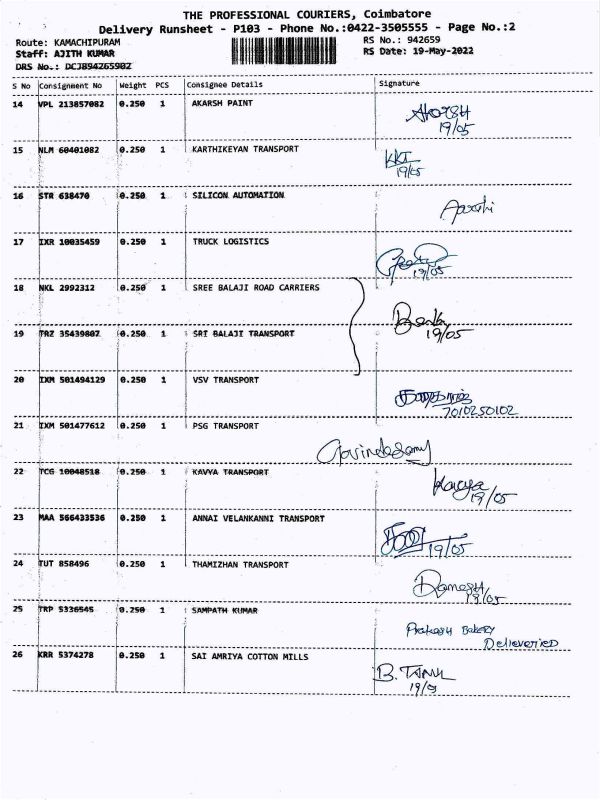 THE PROFESSIONAL COURIERS, Coimbatore
Delivery Runsheet - P103 - Phone No.:0422-3505555 - Page No.:2
Route: KAMACHIPURAM RS No.: 942659
Staff: AJITH KUMAR RS Date: 19-May-2022
DRS No.: DCJB94265902
S No Consignment No Weight PCS Consignee Details Signature
14 VPL 213857082 0.250 1 AKARSH PAINT
19/05
15 NLM 60401082 0.250 1 KARTHIKEYAN TRANSPORT
19/05
16 STR 638470 0.250 1 SILICON AUTOMATION
17 IXR 10035459 0.250 1 TRUCK LOGISTICS
19/05
18 NKL 2992312 0.250 1 SREE BALAJI ROAD CARRIERS
19 TRZ 35439807 0.250 1 SRI BALAJI TRANSPORT
19/05
20 IXM 501494129 0.250 1 VSV TRANSPORT
7010250102
21 IXM 501477612 0.250 1 PSG TRANSPORT
Govindasamy
22 TCG 10048518 0.250 1 KAVYA TRANSPORT
Kavya
19/05
23 MAA 566433536 0.250 1 ANNAI VELANKANNI TRANSPORT
19/05
24 TUT 858496 0.250 1 THAMIZHAN TRANSPORT
Ramesh
19/05
25 TRP 5336545 0.250 1 SAMPATH KUMAR
Prakash Bakery
Delieveried
26 KRR 5374278 0.250 1 SAI AMRIYA COTTON MILLS
B. TAMIL